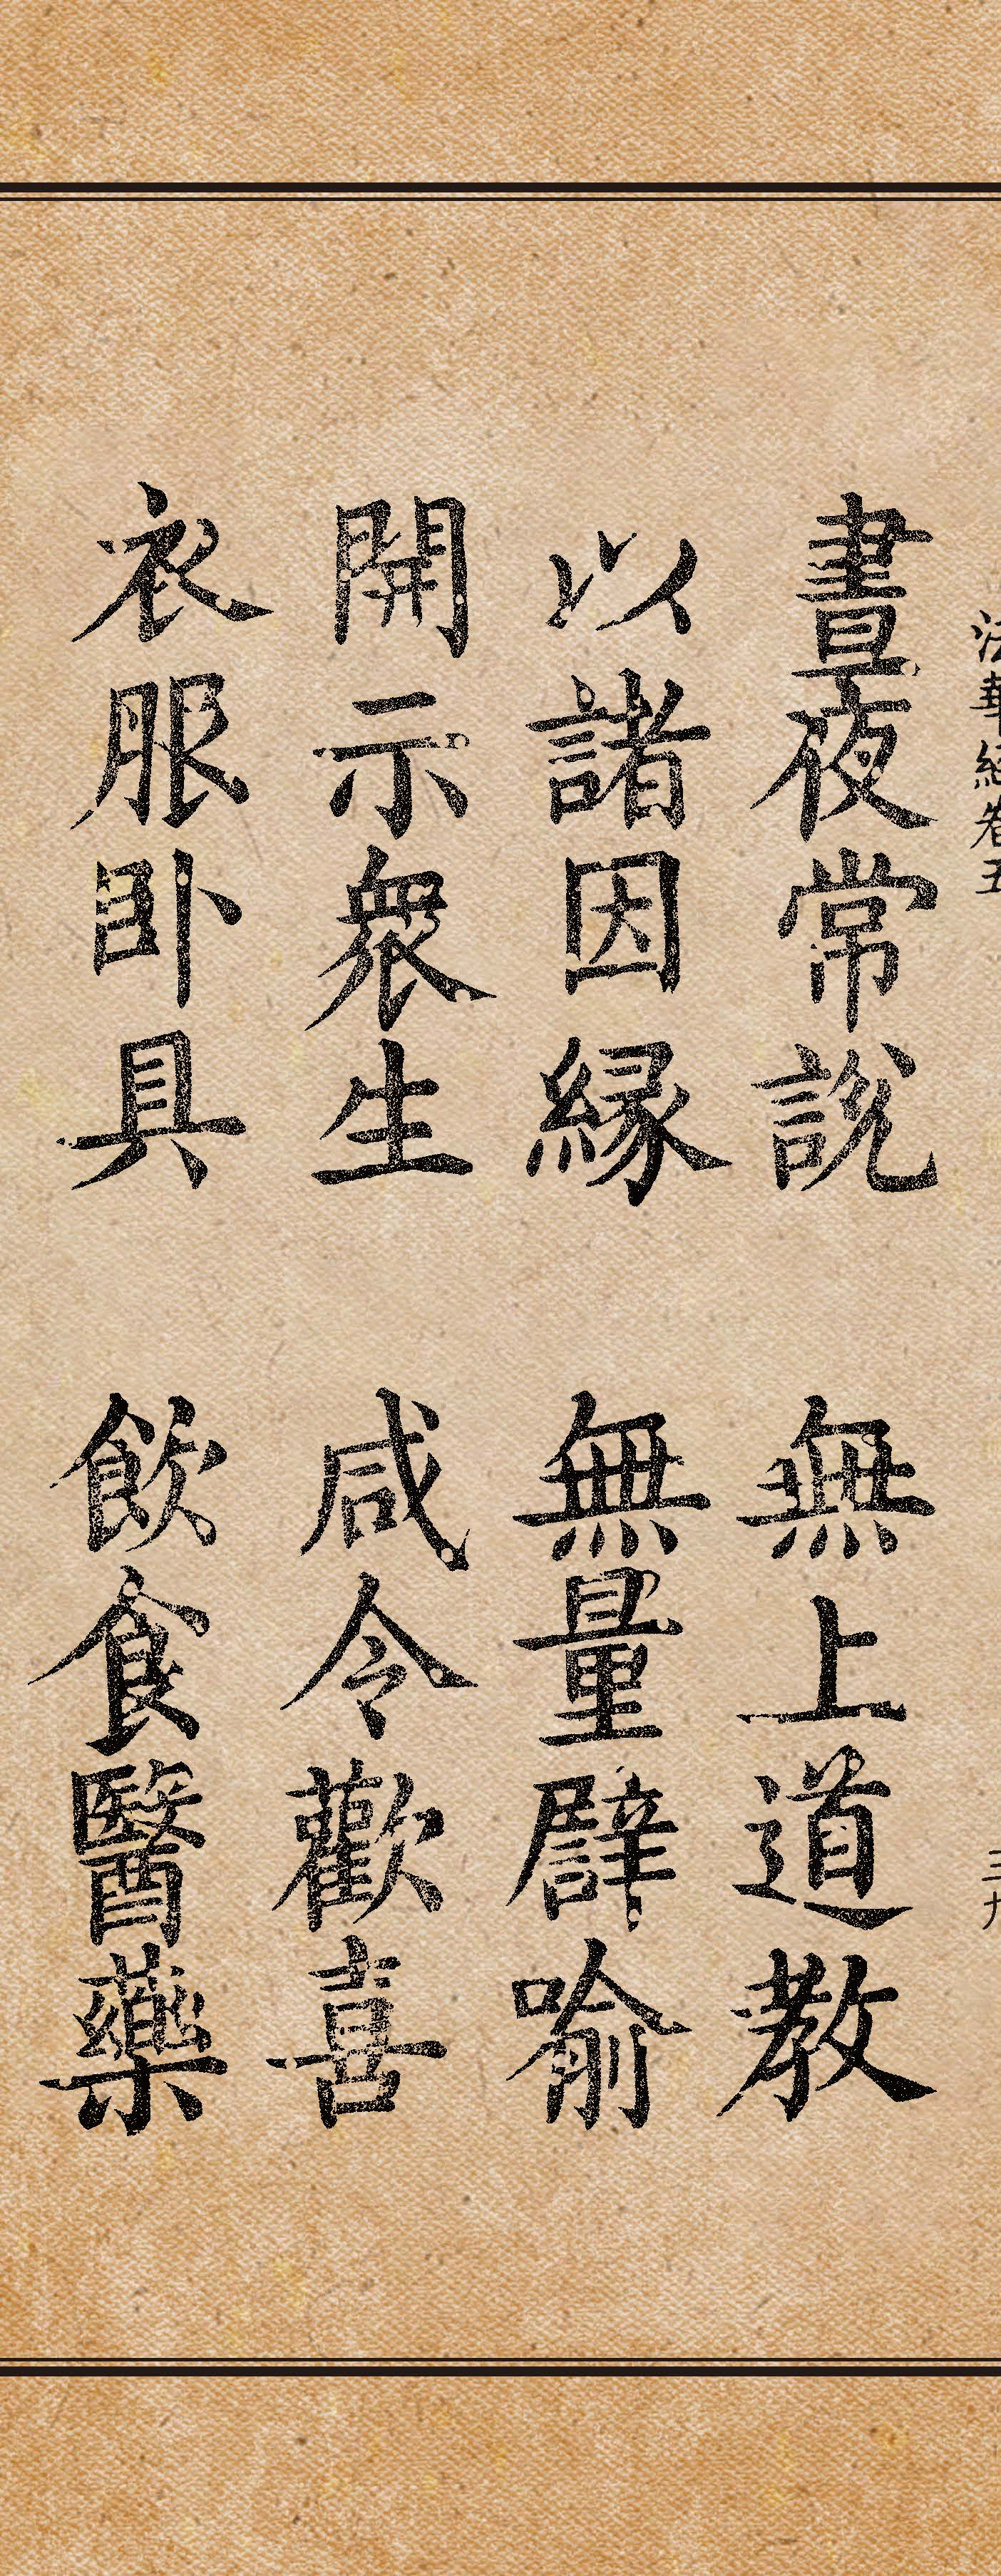 法華經卷五 三九
晝夜常說 無上道教
以諸因緣 無量譬喻
開示衆生 咸令歡喜
衣服臥具 飲食醫藥